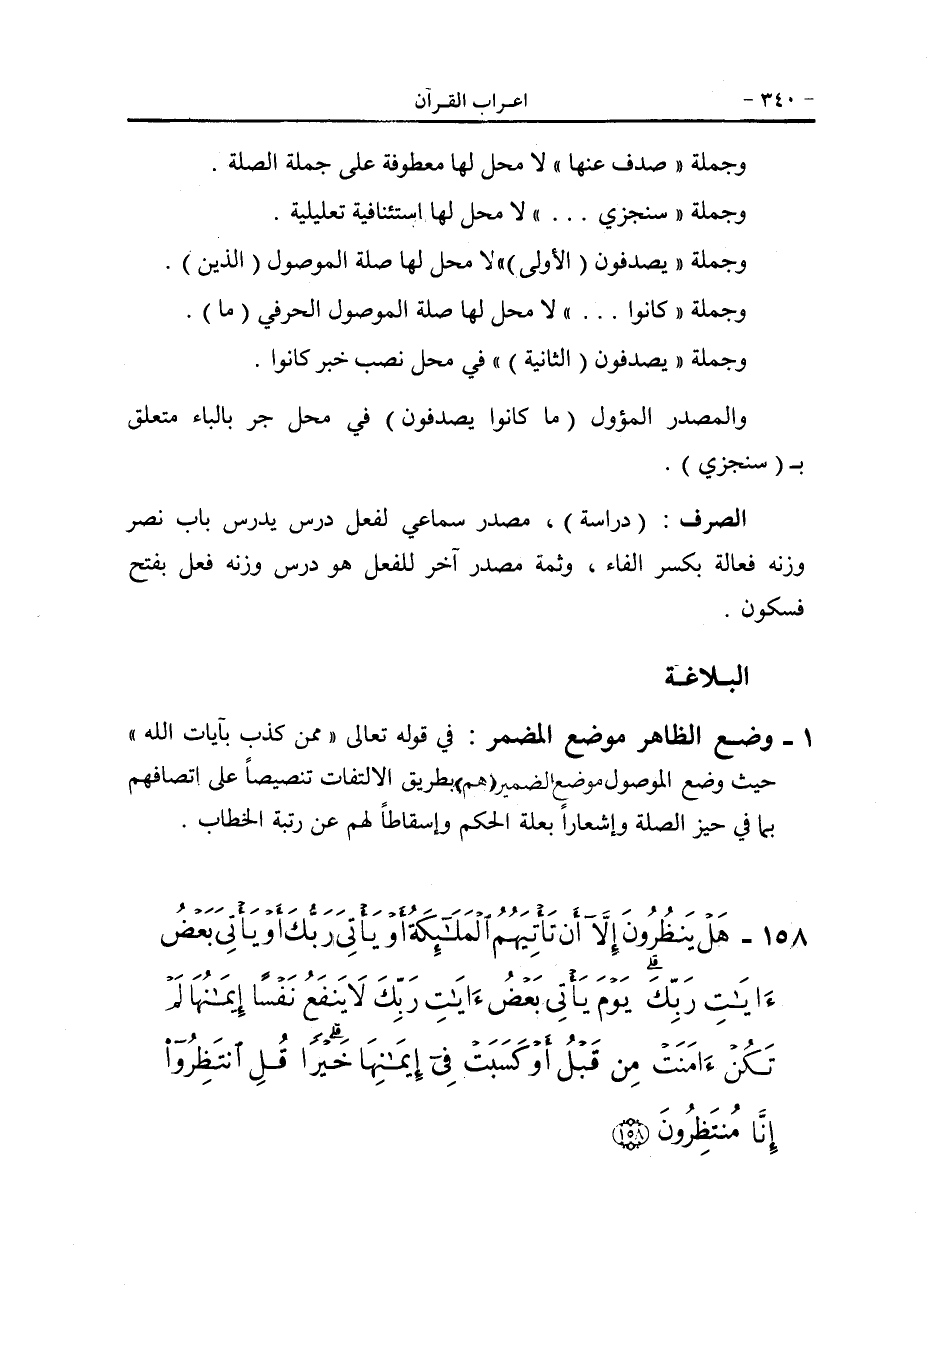 - ٣٤٠ - اعراب القرآن
وجملة « صدف عنها » لا محل لها معطوفة على جملة الصلة .
وجملة « سنجزي . . . » لا محل لها استئنافية تعليلية .
وجملة « يصدفون ( الأولى )» لا محل لها صلة الموصول ( الذين ) .
وجملة « كانوا . . . » لا محل لها صلة الموصول الحرفي ( ما ) .
وجملة « يصدفون ( الثانية ) » في محل نصب خبر كانوا .
والمصدر المؤول ( ما كانوا يصدفون ) في محل جر بالباء متعلق
بـ ( سنجزي ) .
الصرف : ( دراسة ) ، مصدر سماعي لفعل درس يدرس باب نصر
وزنه فعالة بكسر الفاء ، وثمة مصدر آخر للفعل هو درس وزنه فعل بفتح
فسكون .
البـلاغـة
١ - وضـع الظاهر موضع المضمر : في قوله تعالى « ممن كذب بآيات الله »
حيث وضع الموصول موضع الضمير (هم) بطريق الالتفات تنصيصاً على اتصافهم
بما في حيز الصلة وإشعاراً بعلة الحكم وإسقاطاً لهم عن رتبة الخطاب .
١٥٨ - هَلْ يَنظُرُونَ إِلَّآ أَن تَأْتِيَهُمُ ٱلْمَلَـٰٓئِكَةُ أَوْ يَأْتِىَ رَبُّكَ أَوْ يَأْتِىَ بَعْضُ
ءَايَـٰتِ رَبِّكَ ۗ يَوْمَ يَأْتِى بَعْضُ ءَايَـٰتِ رَبِّكَ لَا يَنفَعُ نَفْسًا إِيمَـٰنُهَا لَمْ
تَكُنْ ءَامَنَتْ مِن قَبْلُ أَوْ كَسَبَتْ فِىٓ إِيمَـٰنِهَا خَيْرًا ۗ قُلِ ٱنتَظِرُوٓا۟
إِنَّا مُنتَظِرُونَ ﴿١٥٨﴾